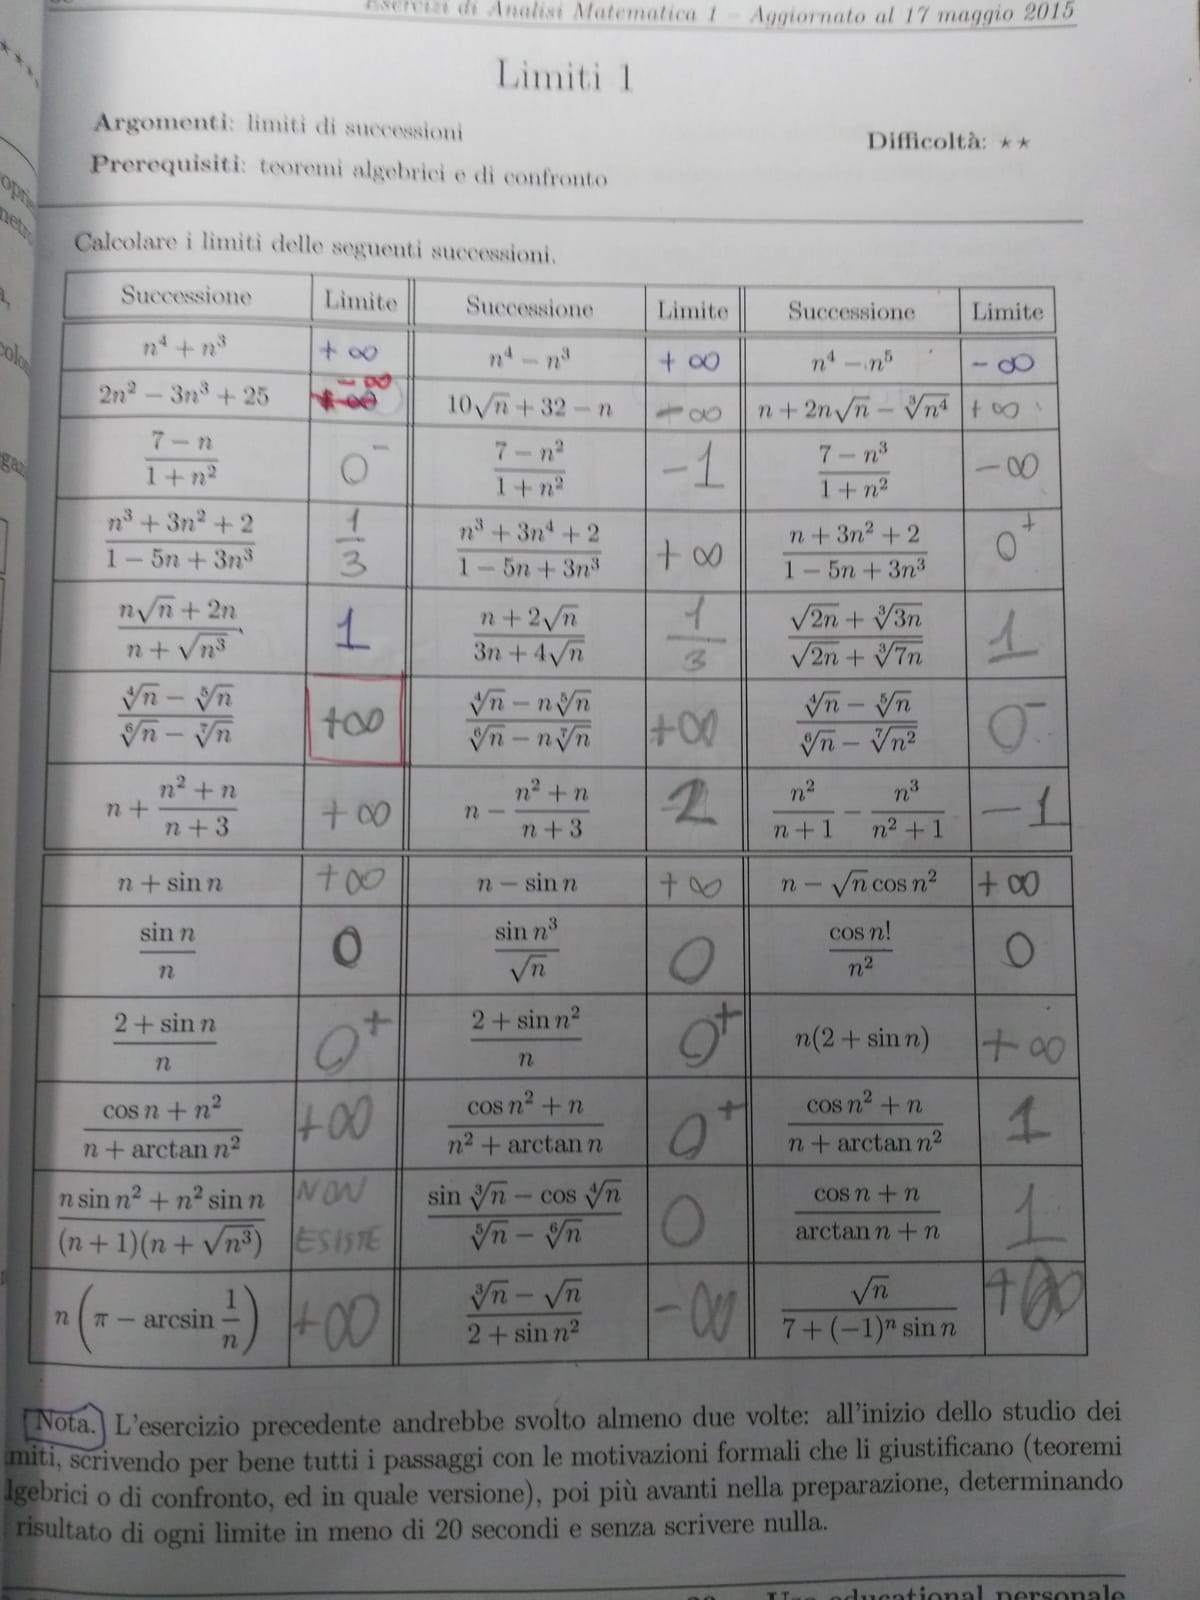 Esercizi di Analisi Matematica 1 – Aggiornato al 17 maggio 2015
Limiti 1
Argomenti: limiti di successioni
Difficoltà: ⋆⋆
Prerequisiti: teoremi algebrici e di confronto
Calcolare i limiti delle seguenti successioni.
Successione | Limite | Successione | Limite | Successione | Limite
n⁴ + n³ | +∞ | n⁴ − n³ | +∞ | n⁴ − n⁵ | −∞
2n² − 3n³ + 25 | −∞ | 10√n + 32 − n | ∞ | n + 2n√n − ∛(n⁴) | +∞
(7 − n)/(1 + n²) | 0⁻ | (7 − n²)/(1 + n²) | −1 | (7 − n³)/(1 + n²) | −∞
(n³ + 3n² + 2)/(1 − 5n + 3n³) | 1/3 | (n³ + 3n⁴ + 2)/(1 − 5n + 3n³) | +∞ | (n + 3n² + 2)/(1 − 5n + 3n³) | 0⁺
(n√n + 2n)/(n + √(n³)) | 1 | (n + 2√n)/(3n + 4√n) | 1/3 | (√(2n) + ∛(3n))/(√(2n) + ∛(7n)) | 1
(⁴√n − ⁵√n)/(⁶√n − ⁷√n) | +∞ | (⁴√n − n⁵√n)/(⁶√n − n⁷√n) | +∞ | (⁴√n − ⁵√n)/(⁶√n − ⁷√(n²)) | 0⁻
n + (n² + n)/(n + 3) | +∞ | n − (n² + n)/(n + 3) | 2 | n²/(n + 1) − n³/(n² + 1) | −1
n + sin n | +∞ | n − sin n | +∞ | n − √n cos n² | +∞
(sin n)/n | 0 | (sin n³)/√n | 0 | (cos n!)/n² | 0
(2 + sin n)/n | 0⁺ | (2 + sin n²)/n | 0⁺ | n(2 + sin n) | +∞
(cos n + n²)/(n + arctan n²) | +∞ | (cos n² + n)/(n² + arctan n) | 0⁺ | (cos n² + n)/(n + arctan n²) | 1
(n sin n² + n² sin n)/((n + 1)(n + √(n³))) | NON ESISTE | (sin ∛n − cos ⁴√n)/(⁵√n − ⁶√n) | 0 | (cos n + n)/(arctan n + n) | 1
n(π − arcsin 1/n) | +∞ | (∛n − √n)/(2 + sin n²) | −∞ | √n/(7 + (−1)ⁿ sin n) | +∞
Nota. L'esercizio precedente andrebbe svolto almeno due volte: all'inizio dello studio dei
miti, scrivendo per bene tutti i passaggi con le motivazioni formali che li giustificano (teoremi
lgebrici o di confronto, ed in quale versione), poi più avanti nella preparazione, determinando
risultato di ogni limite in meno di 20 secondi e senza scrivere nulla.
Uso educational personale